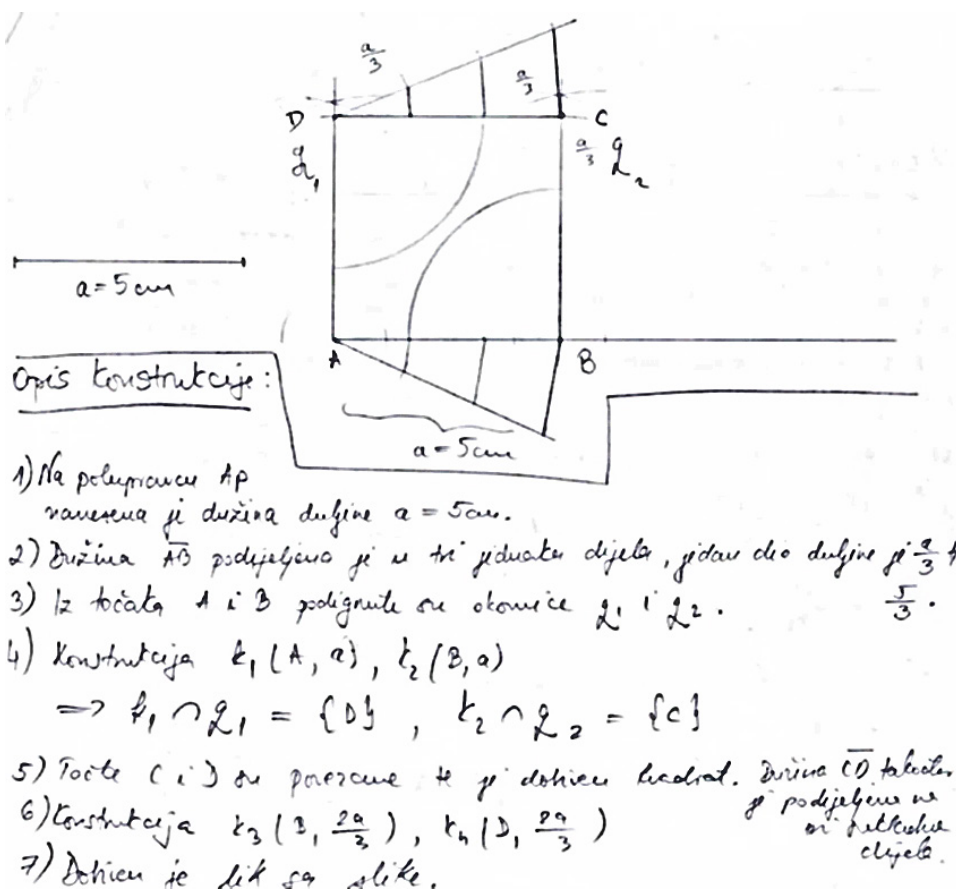 a/3
a/3
D
C
g₁
a/3 g₂
a = 5 cm
A
B
Opis konstrukcije:
a = 5 cm
1) Na polupravcu Ap
nanesena je dužina duljine a = 5 cm.
2) Dužina AB podijeljena je u tri jednaka dijela, jedan dio duljine je a/3
5/3.
3) Iz točaka A i B podignute su okomice g₁ i g₂.
4) Konstrukcija k₁(A, a), k₂(B, a)
=> k₁ ∩ g₁ = {D}, k₂ ∩ g₂ = {C}
5) Točke C i D su povezane te je dobiven kvadrat. Dužina CD također
je podijeljena na
tri jednaka
dijela.
6) Konstrukcija k₃(B, 2a/3), k₄(D, 2a/3)
7) Dobiven je lik sa slike.